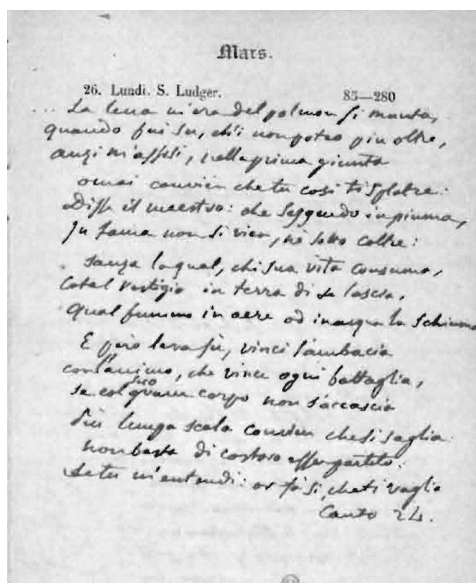 Mars.
26. Lundi. S. Ludger. 85—280
... La lena m'era del polmon si munta,
quando fui su, ch'i non potea piu oltre,
anzi m'assisi, nella prima giunta
omai convien che tu cosi ti spoltre:
Disse il maestro: che seggendo in piuma,
In fama non si vien, nè sotto coltre:
sanza la qual, chi sua vita consuma,
Cotal vestigio in terra di se lascia,
Qual fummo in aere od in acqua la schiuma
E pero leva su, vinci l'ambascia
con l'animo, che vince ogni battaglia,
se col suo grave corpo non s'accascia
Piu lunga scala convien che si saglia
non basta di costoro esser partito:
se tu m'entendi: or fa si, che ti vaglia
Canto 24.